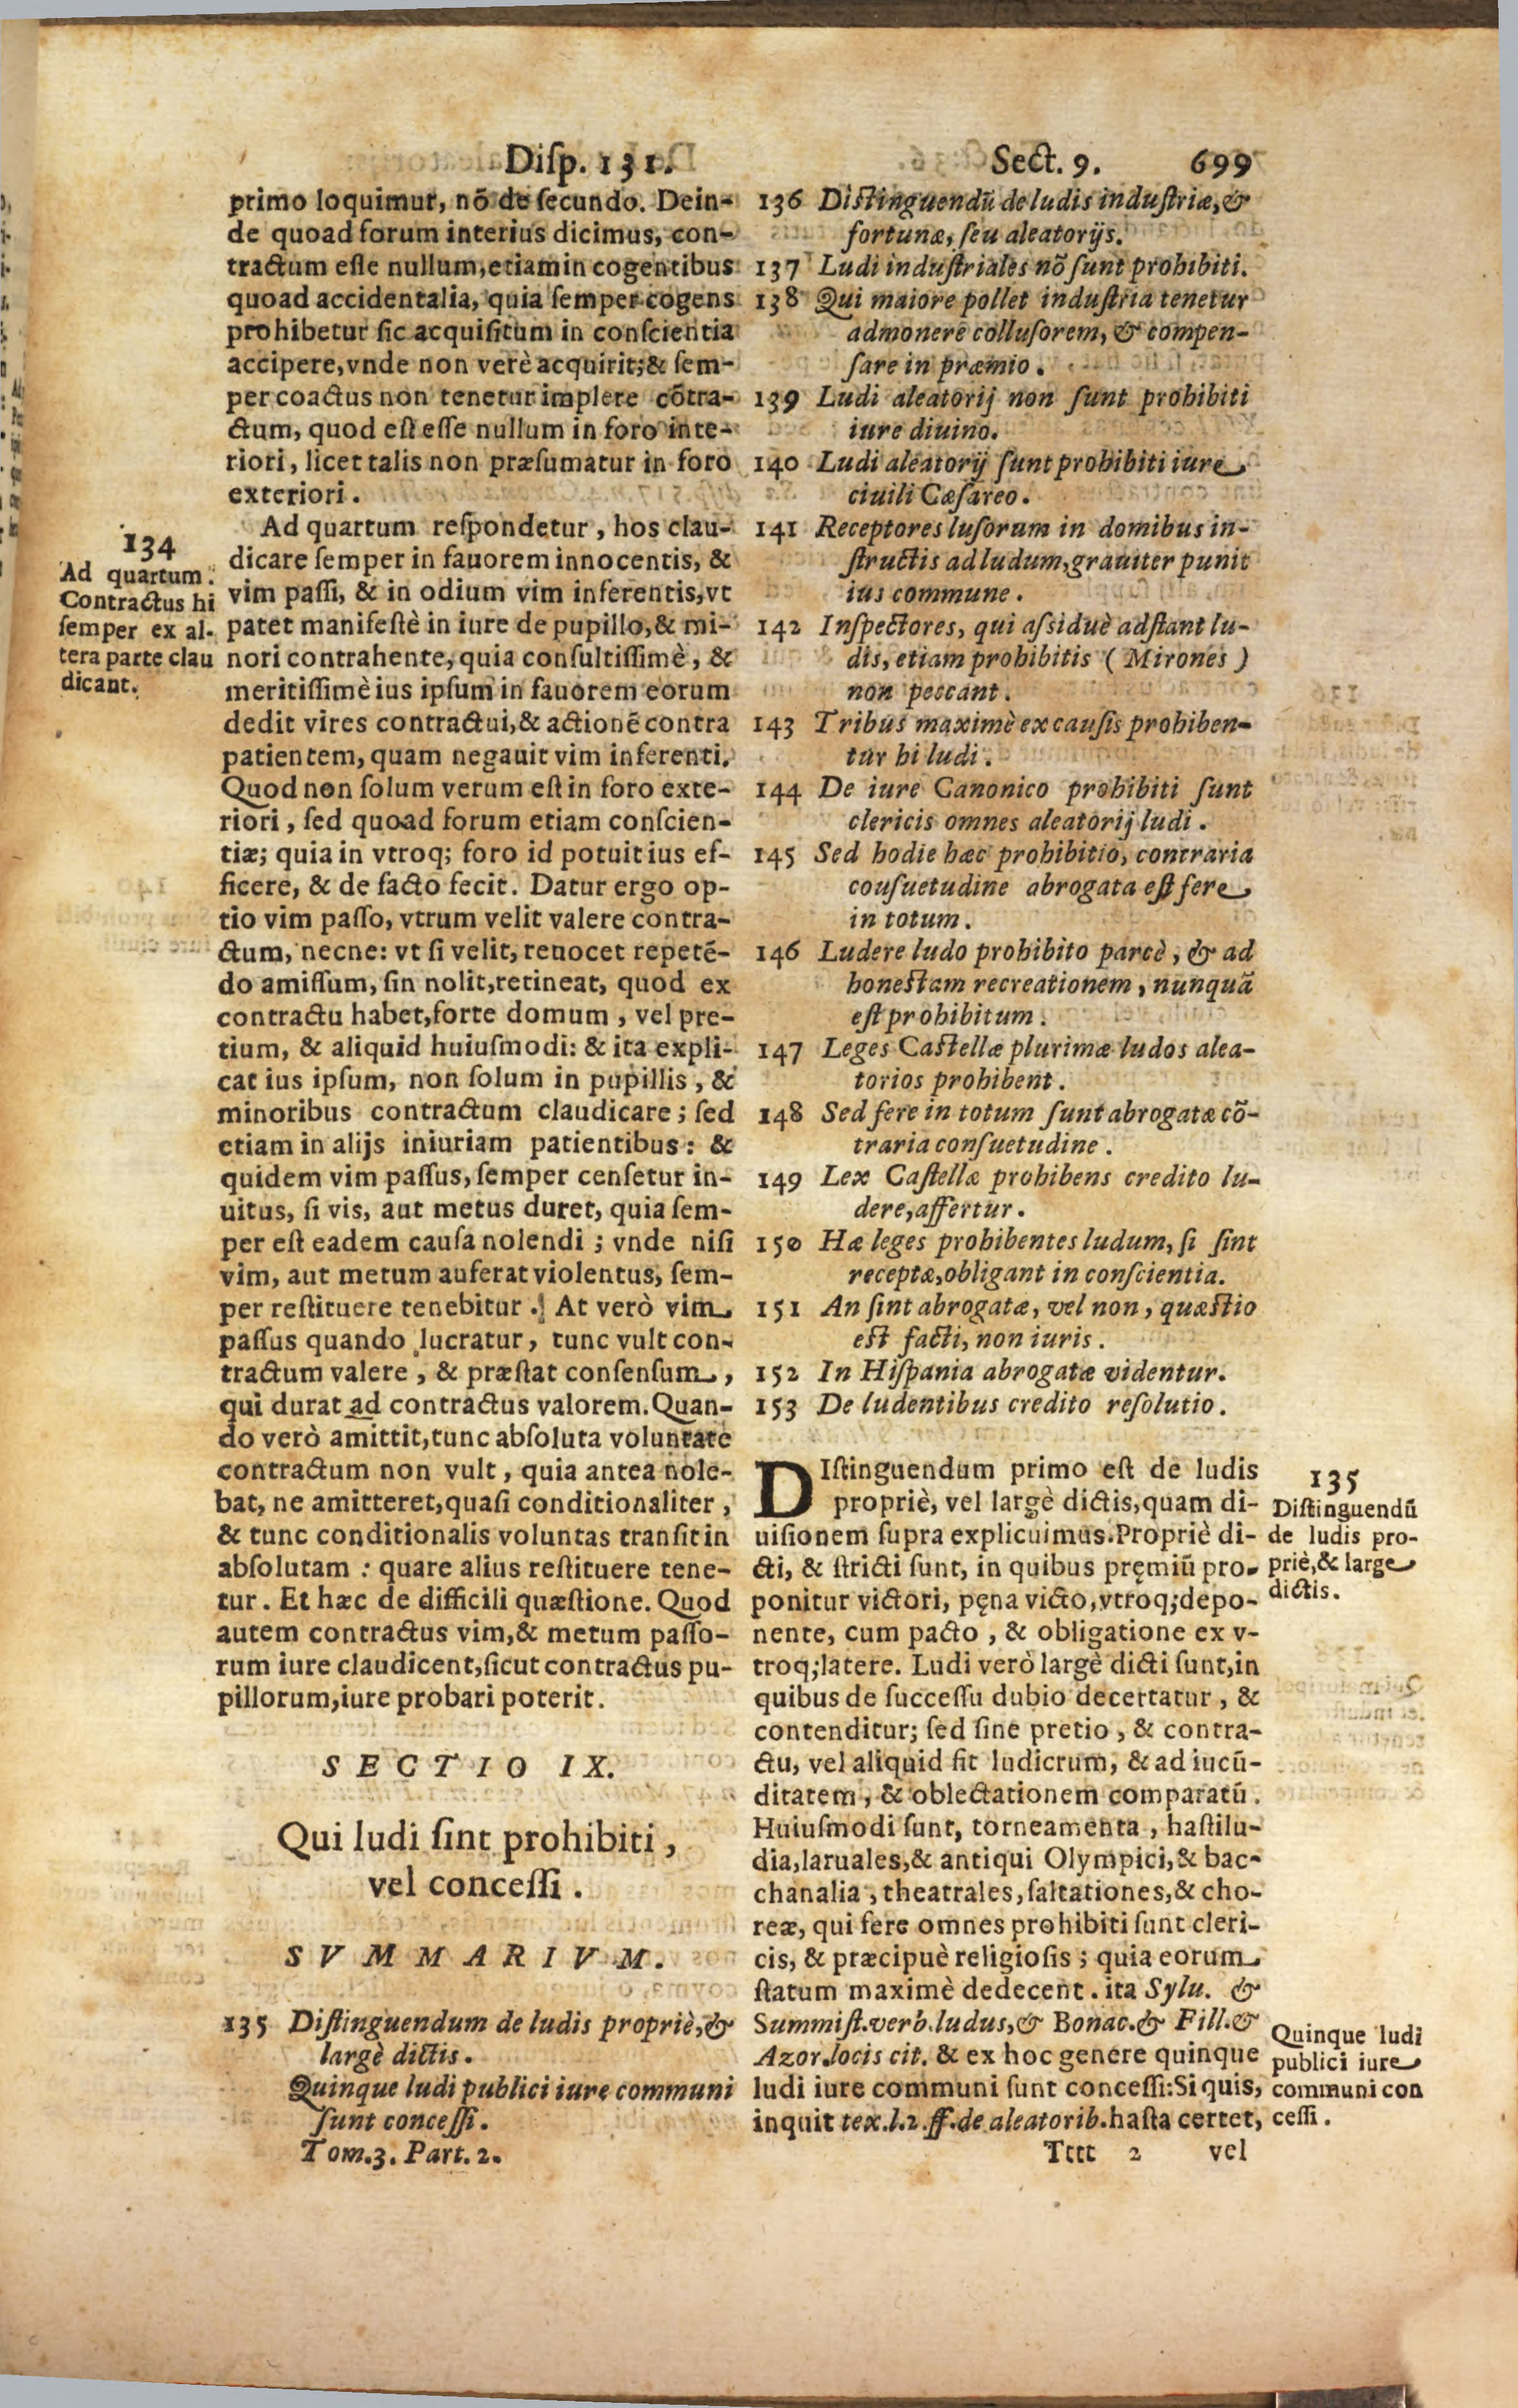 Disp. 131. Sect. 9. 699
primo loquimur, nõ de ſecundo. Dein-
de quoad forum interius dicimus, con-
tractum eſſe nullum, etiam in cogentibus
quoad accidentalia, quia ſemper cogens
prohibetur ſic acquiſitum in conſcientia
accipere, vnde non verè acquirit; & ſem-
per coactus non tenetur implere cõtra-
ctum, quod eſt eſſe nullum in foro inte-
riori, licet talis non præſumatur in foro
exteriori.
134
Ad quartum.
Contractus hi
ſemper ex al-
tera parte clau
dicant.
Ad quartum reſpondetur, hos clau-
dicare ſemper in fauorem innocentis, &
vim paſſi, & in odium vim inferentis, vt
patet manifeſtè in iure de pupillo, & mi-
nori contrahente, quia conſultiſſimè, &
meritiſſimè ius ipſum in fauorem eorum
dedit vires contractui, & actionẽ contra
patientem, quam negauit vim inferenti.
Quod non ſolum verum eſt in foro exte-
riori, ſed quoad forum etiam conſcien-
tiæ; quia in vtroq; foro id potuit ius ef-
ficere, & de facto fecit. Datur ergo op-
tio vim paſſo, vtrum velit valere contra-
ctum, necne: vt ſi velit, reuocet repetẽ-
do amiſſum, ſin nolit, retineat, quod ex
contractu habet, forte domum, vel pre-
tium, & aliquid huiuſmodi: & ita expli-
cat ius ipſum, non ſolum in pupillis, &
minoribus contractum claudicare; ſed
etiam in alijs iniuriam patientibus: &
quidem vim paſſus, ſemper cenſetur in-
uitus, ſi vis, aut metus duret, quia ſem-
per eſt eadem cauſa nolendi; vnde niſi
vim, aut metum auferat violentus, ſem-
per reſtituere tenebitur. At verò vim
paſſus quando lucratur, tunc vult con-
tractum valere, & præſtat conſenſum,
qui durat ad contractus valorem. Quan-
do verò amittit, tunc abſoluta voluntate
contractum non vult, quia antea nole-
bat, ne amitteret, quaſi conditionaliter,
& tunc conditionalis voluntas tranſit in
abſolutam: quare alius reſtituere tene-
tur. Et hæc de difficili quæſtione. Quod
autem contractus vim, & metum paſſo-
rum iure claudicent, ſicut contractus pu-
pillorum, iure probari poterit.
SECTIO IX.
Qui ludi ſint prohibiti,
vel conceſſi.
SVMMARIVM.
135 Diſtinguendum de ludis propriè, &
largè dictis.
Quinque ludi publici iure communi
ſunt conceſſi.
Tom.3. Part.2.
136 Diſtinguendũ de ludis induſtriæ, &
fortunæ, ſeu aleatorijs.
137 Ludi induſtriales nõ ſunt prohibiti.
138 Qui maiore pollet induſtria tenetur
admonere colluſorem, & compen-
ſare in præmio.
139 Ludi aleatorij non ſunt prohibiti
iure diuino.
140 Ludi aleatorij ſunt prohibiti iure
ciuili Cæſareo.
141 Receptores luſorum in domibus in-
ſtructis ad ludum, grauiter punit
ius commune.
142 Inſpectores, qui aſsiduè adſtant lu-
dis, etiam prohibitis (Mirones)
non peccant.
143 Tribus maximè ex cauſis prohiben-
tur hi ludi.
144 De iure Canonico prohibiti ſunt
clericis omnes aleatorij ludi.
145 Sed hodie hæc prohibitio, contraria
couſuetudine abrogata eſt fere
in totum.
146 Ludere ludo prohibito parcè, & ad
honeſtam recreationem, nunquã
eſt prohibitum.
147 Leges Caſtellæ plurimæ ludos alea-
torios prohibent.
148 Sed fere in totum ſunt abrogatæ cõ-
traria conſuetudine.
149 Lex Caſtellæ prohibens credito lu-
dere, affertur.
150 Hæ leges prohibentes ludum, ſi ſint
receptæ, obligant in conſcientia.
151 An ſint abrogatæ, vel non, quæſtio
eſt facti, non iuris.
152 In Hiſpania abrogatæ videntur.
153 De ludentibus credito reſolutio.
DIſtinguendum primo eſt de ludis
propriè, vel largè dictis, quam di-
uiſionem ſupra explicuimus. Propriè di-
cti, & ſtricti ſunt, in quibus pręmiũ pro-
ponitur victori, pęna victo, vtroq; depo-
nente, cum pacto, & obligatione ex v-
troq; latere. Ludi verò largè dicti ſunt, in
quibus de ſucceſſu dubio decertatur, &
contenditur; ſed ſine pretio, & contra-
ctu, vel aliquid ſit ludicrum, & ad iucũ-
ditatem, & oblectationem comparatũ.
Huiuſmodi ſunt, torneamenta, haſtilu-
dia, laruales, & antiqui Olympici, & bac-
chanalia, theatrales, ſaltationes, & cho-
reæ, qui fere omnes prohibiti ſunt cleri-
cis, & præcipuè religioſis; quia eorum
ſtatum maximè dedecent. ita Sylu. &
Summiſt. verb. ludus, & Bonac. & Fill. &
Azor. locis cit. & ex hoc genere quinque
ludi iure communi ſunt conceſſi: Si quis,
inquit tex. l. 2. ff. de aleatorib. haſta certet,
135
Diſtinguendũ
de ludis pro-
priè, & large
dictis.
Quinque ludi
publici iure
communi con
ceſſi.
Tttt 2 vel